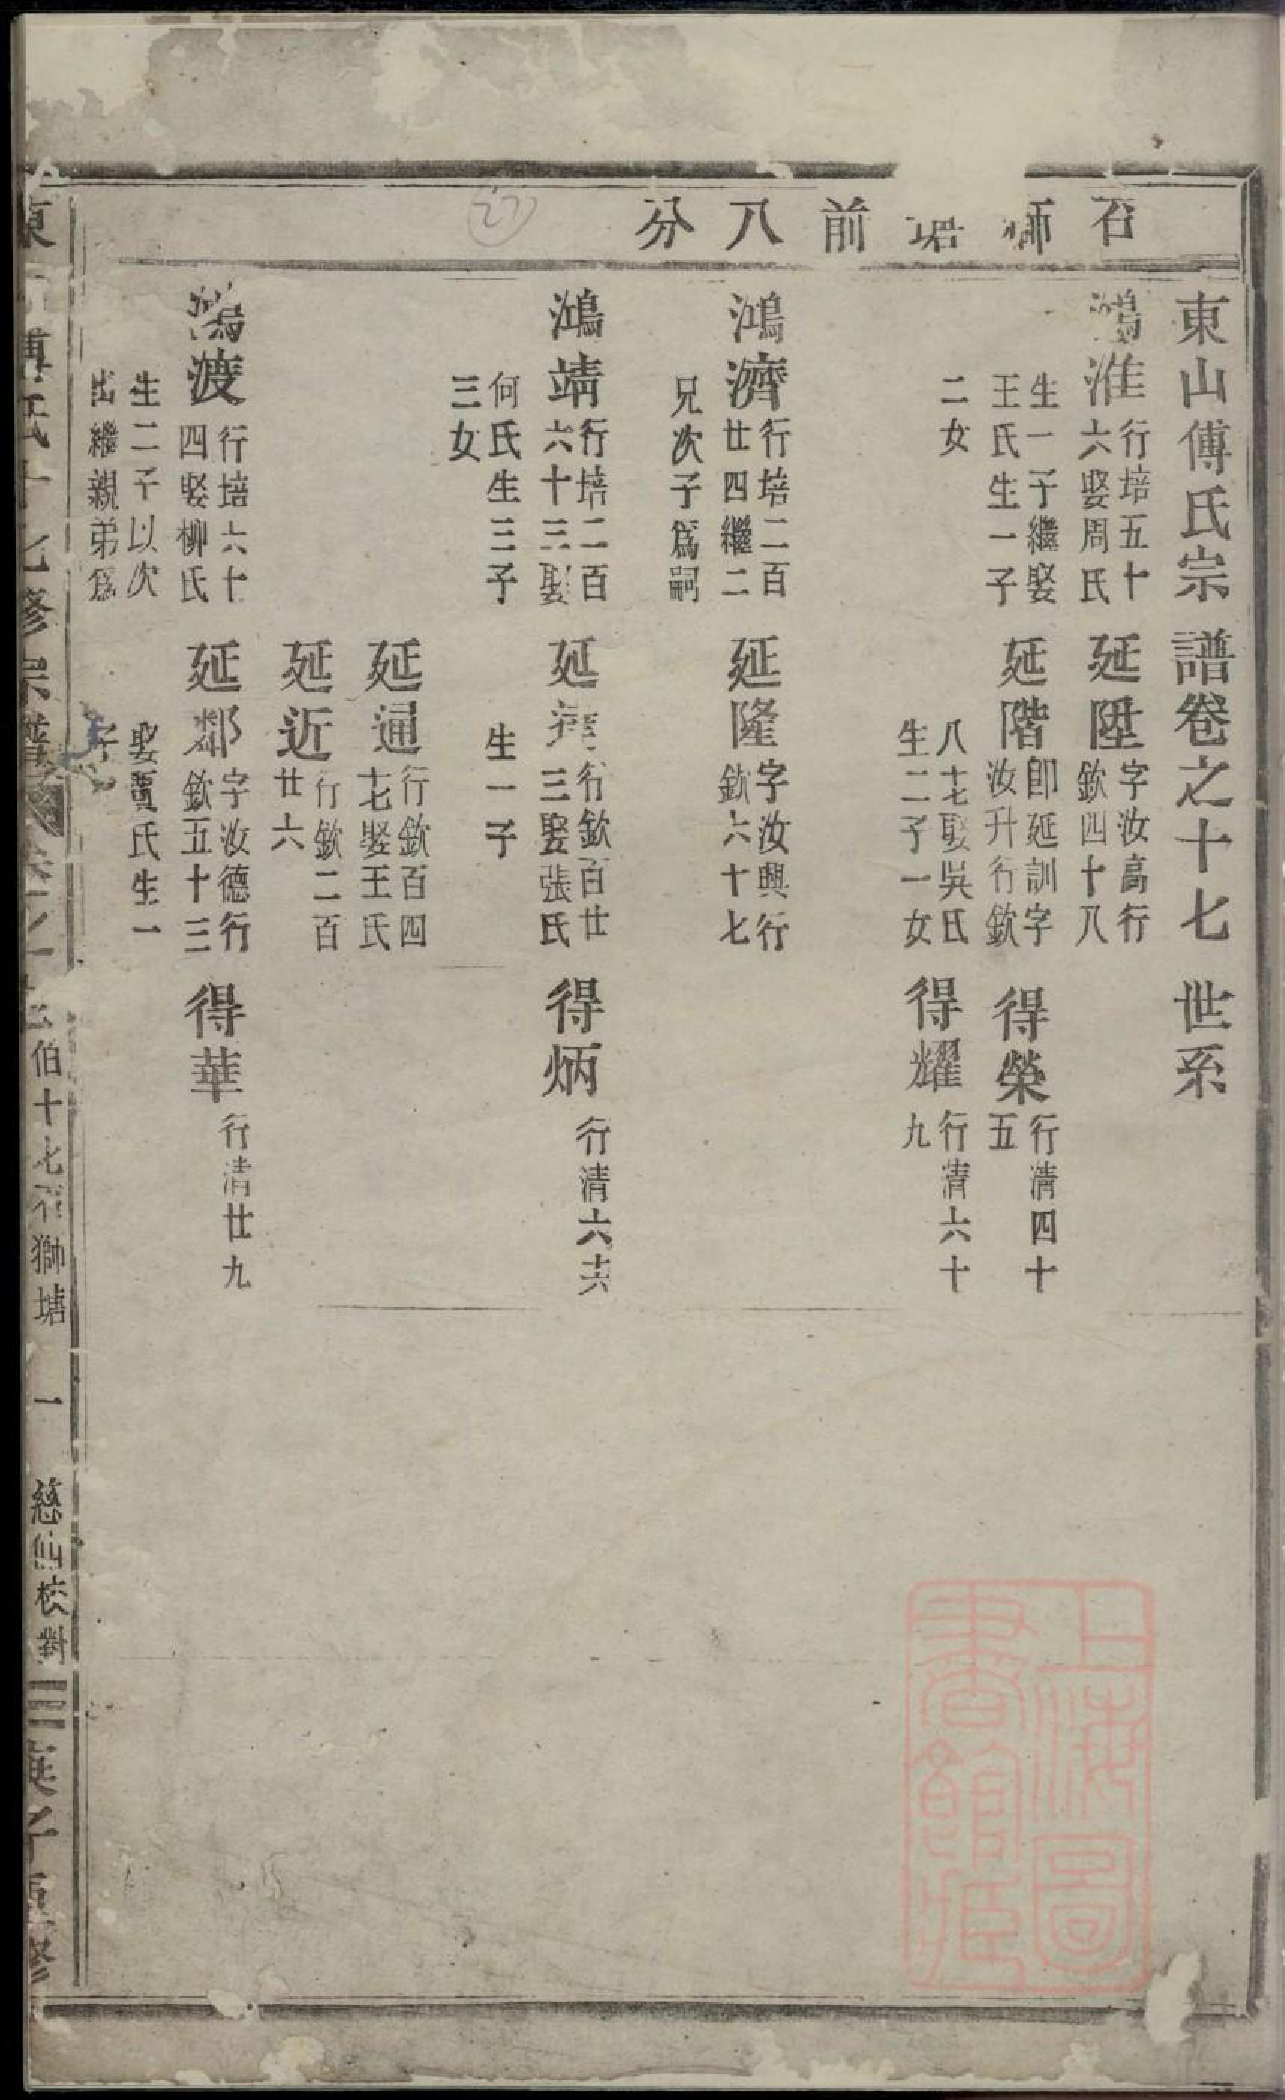 石師塘前八分
東山傅氏宗譜卷之十七 世系
鴻淮 行培五十
六娶周氏
生一子繼娶
王氏生一子
二女
延陞 字汝高行
欽四十八
延階 即延訓字
汝升行欽
八十七娶吳氏
生二子一女
得榮 行清四十
五
得耀 行清六十
九
鴻濟 行培二百
廿四繼二
兄次子爲嗣
延隆 字汝興行
欽六十七
鴻靖 行培二百
六十三娶
何氏生三子
三女
延 行欽百廿
三娶張氏
生一子
得炳 行清六六
延通 行欽百四
七娶王氏
延近 行欽二百
廿六
鴻渡 行培六十
四娶柳氏
生二子以次
出繼親弟爲
延鄰 字汝德行
欽五十三
娶賈氏生一
子
得華 行清廿九
東 傅氏十七修宗譜 卷之十七 伯十七石獅塘 一 慈山校對 庚子重修
上海圖書館藏